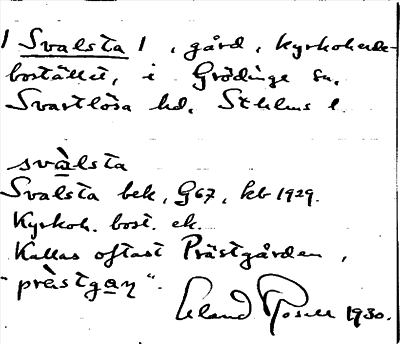 1 Svalsta 1, gård, kyrkoherde-
bostället, i Grödinge sn.
Svartlösa hd. Sthlms l.
svàlsta
Svalsta bek, G67, kb 1929.
Kyrkoh. bost. ek.
Kallas oftast Prästgården,
"prèstgaɳ".
Erland Rosell 1930.